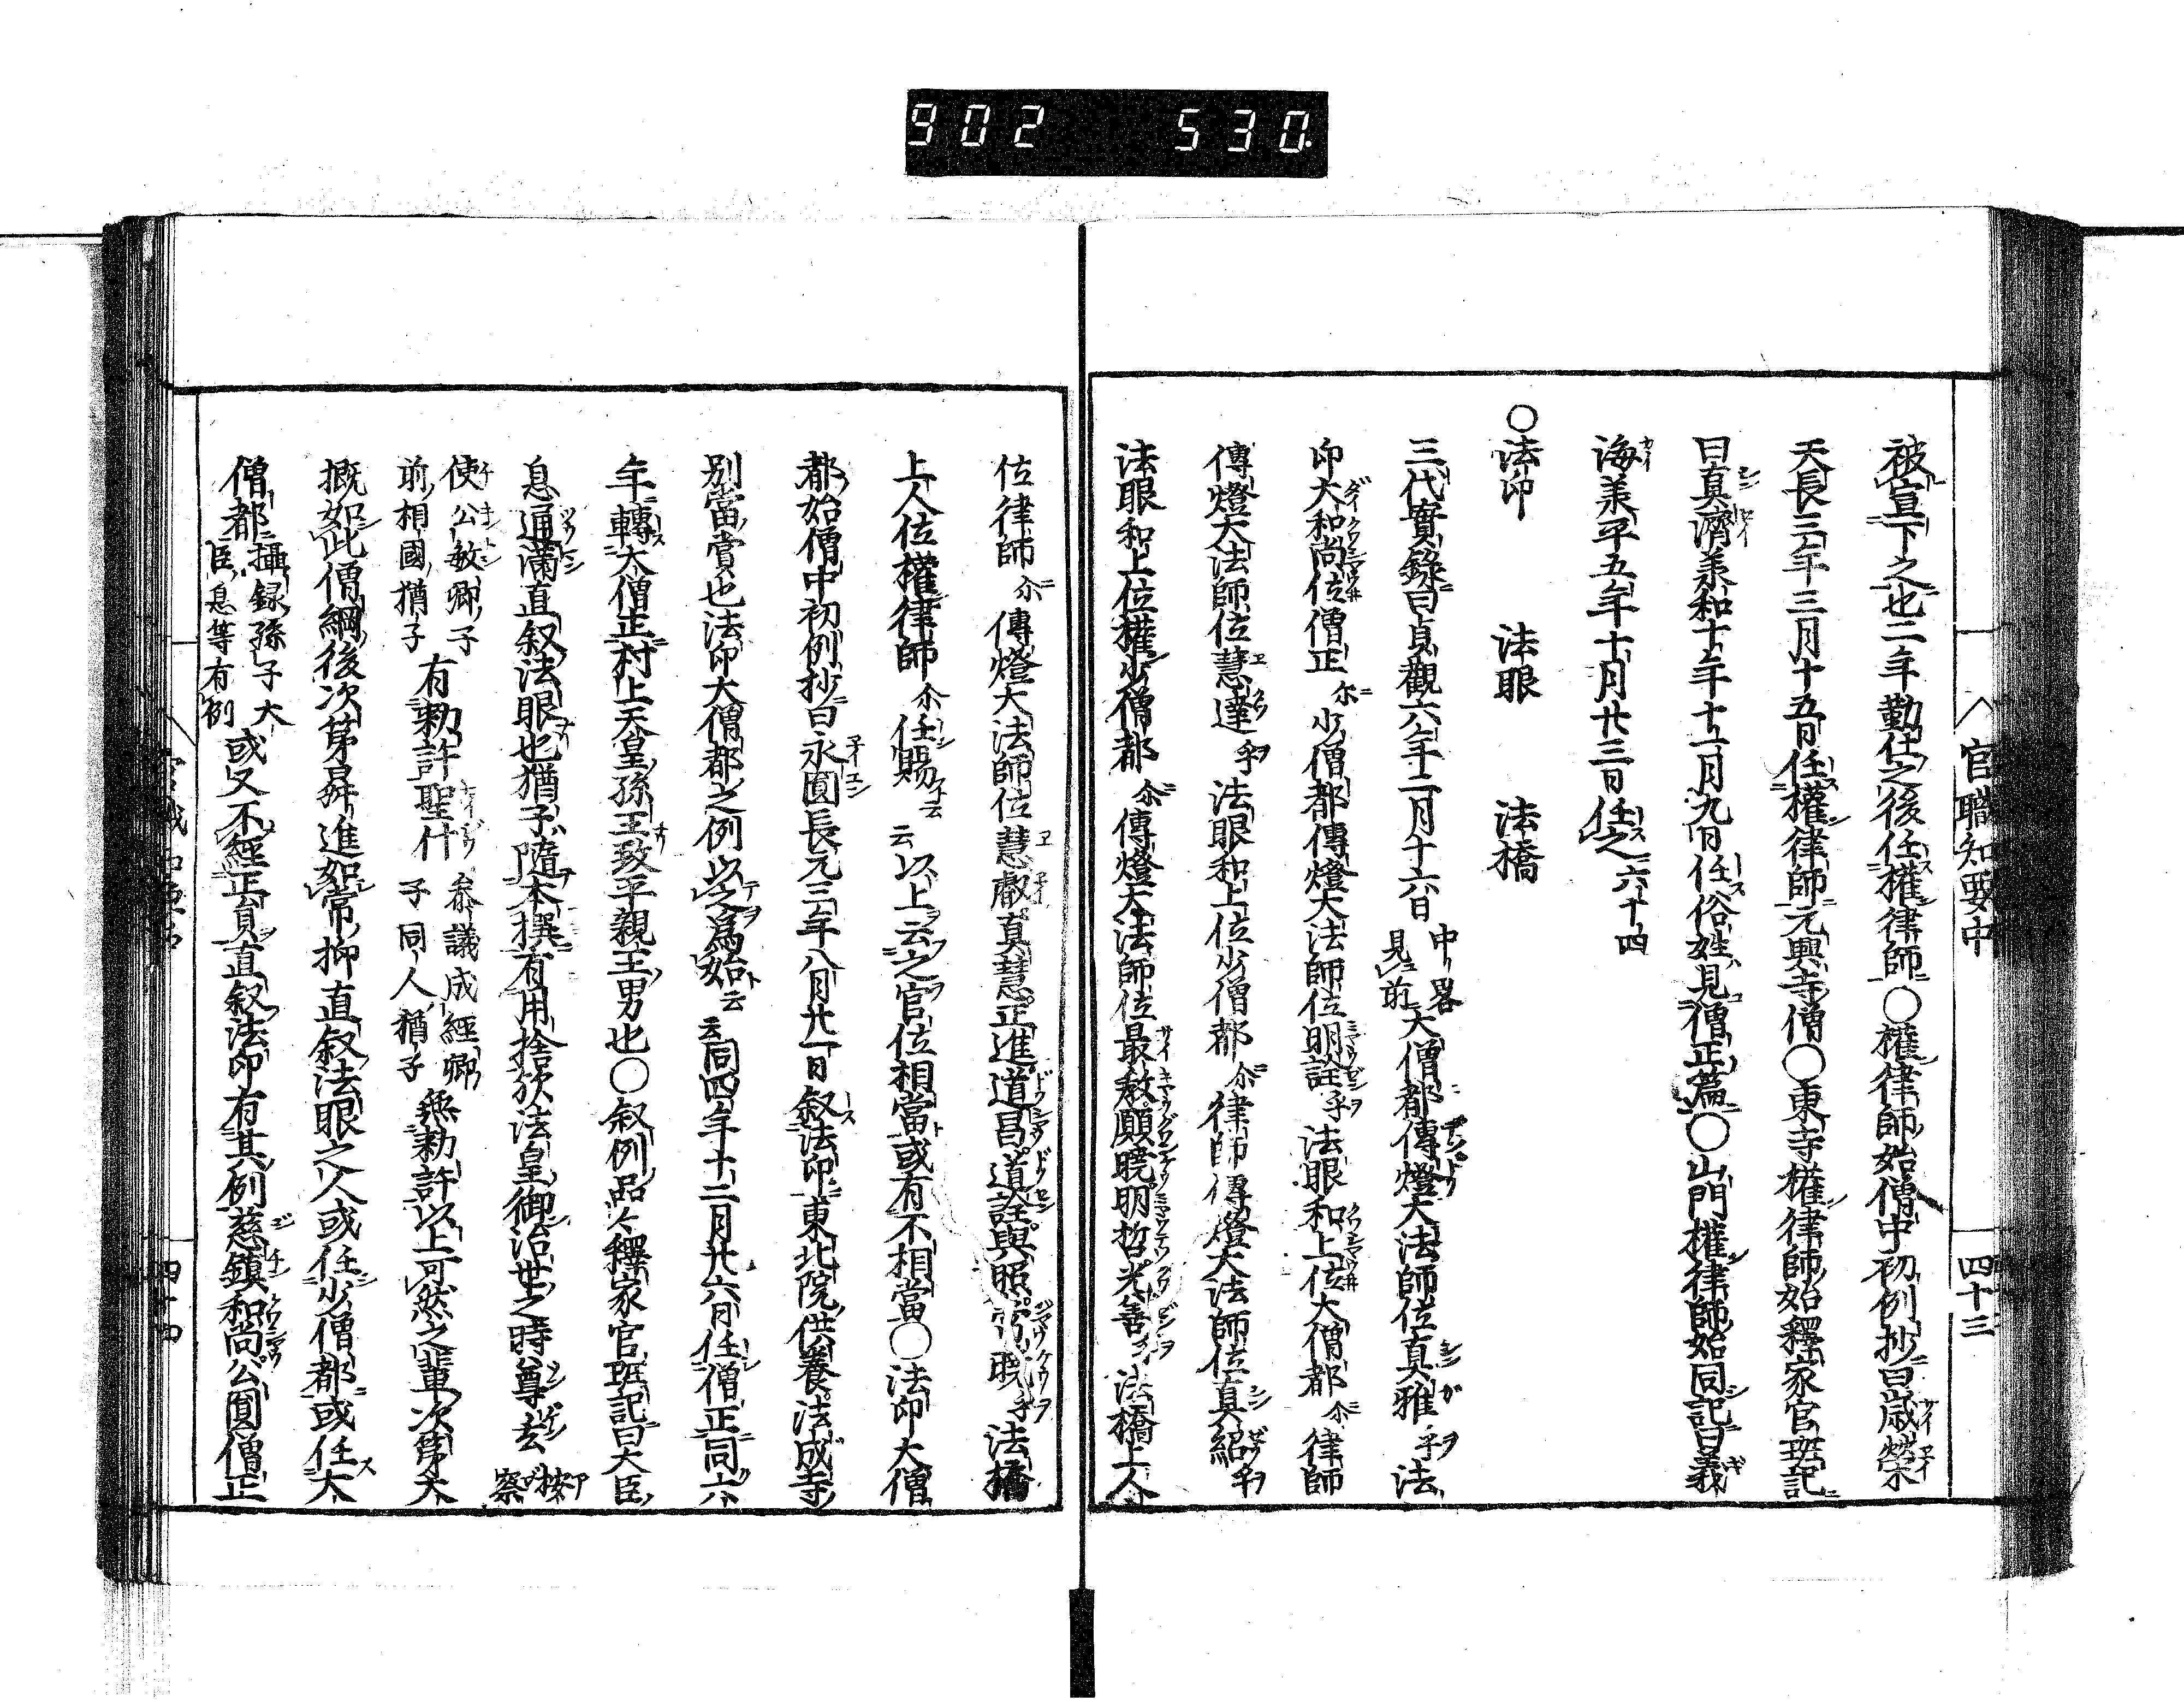 902 530
官職知要中
四十三
被宣下之也二年勤仕之後任權律師○權律師始僧中初例抄曰歳榮
天長三年三月十五日任權律師元興寺僧○東寺權律師始釋家官班記
曰真濟兼和十年十一月九日任俗姓見僧正篇○山門權律師始同記曰義
海兼平五年十月廿三日任之六十四
○法印 法眼 法橋
三代實錄曰貞觀六年二月十六日中畧見前大僧都傳燈大法師位真雅乎法
印大和尚位僧正尓少僧都傳燈大法師位明詮乎法眼和上位大僧都尓律師
傳燈大法師位慧達乎法眼和上位少僧都尓律師傳燈大法師位真紹乎
法眼和上位權少僧都尓傳燈大法師位最教願曉明哲光善乎法橋上人
位律師尓傳燈大法師位慧叡真慧正進道昌道詮興照常曉乎法橋
上人位權律師尓任賜云云以上云之官位相當或有不相當○法印大僧
都始僧中初例抄曰永圓長元三年八月廿一日叙法印東北院供養法成寺
別當賞也法印大僧都之例以之為始云云同四年十二月廿六日任僧正同六
年轉大僧正村上天皇孫王致平親王男也○叙例品々釋家官班記曰大臣
息通滿直叙法眼也猶子隨本撰有用捨欤法皇御治世之時尊玄按察
使公敏卿子前相國猶子有勅許聖什參議成經卿子同人猶子無勅許以上可然之輩次第大
概如此僧綱後次第昇進如常抑直叙法眼之人或任少僧都或任大
僧都攝録孫子大臣息等有例或又不經正員直叙法印有其例慈鎮和尚公圓僧正
四十四